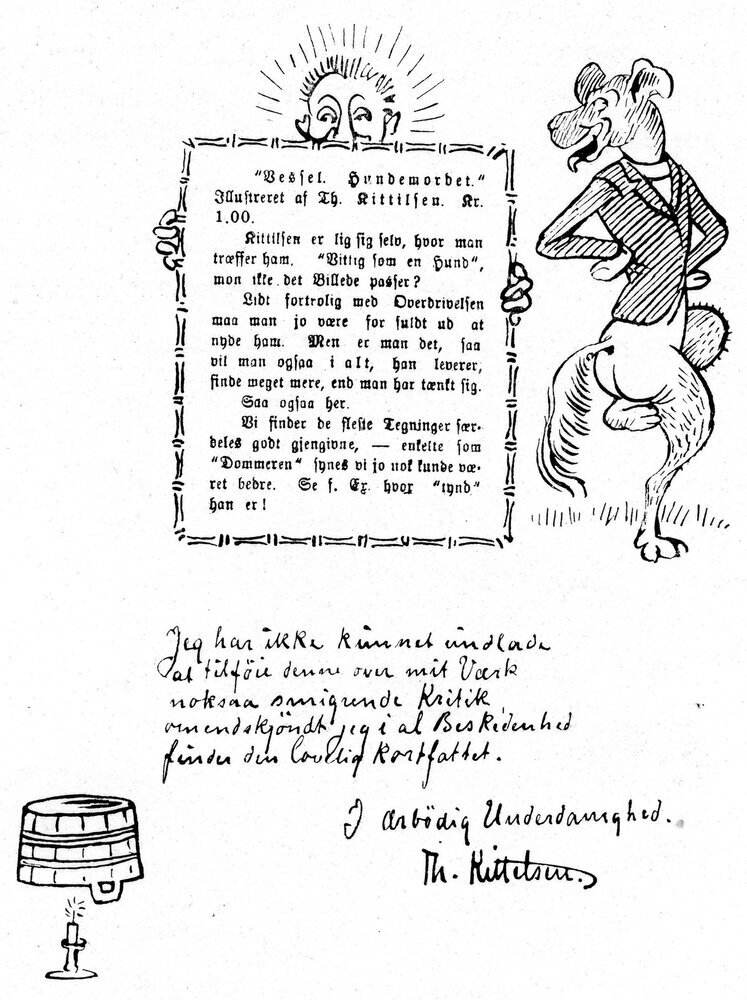 "Vessel. Hundemordet."
Illustreret af Th. Kittilsen. Kr.
1.00.
Kittilsen er lig sig selv, hvor man
træffer ham. "Vittig som en Hund",
mon ikke det Billede passer?
Lidt fortrolig med Overdrivelsen
maa man jo være for fuldt ud at
nyde ham. Men er man det, saa
vil man ogsaa i alt, han leverer,
finde meget mere, end man har tænkt sig.
Saa ogsaa her.
Vi finder de fleste Tegninger sær-
deles godt gjengivne, — enkelte som
"Dommeren" synes vi jo nok kunde væ-
ret bedre. Se f. Ex. hvor "tynd"
han er!
Jeg har ikke kunnet undlade
at tilföie denne over mit Værk
noksaa smigrende Kritik,
omendskjöndt jeg i al Beskedenhed
finder den lovlig kortfattet.
I ærbödig Underdanighed.
Th. Kittelsen.